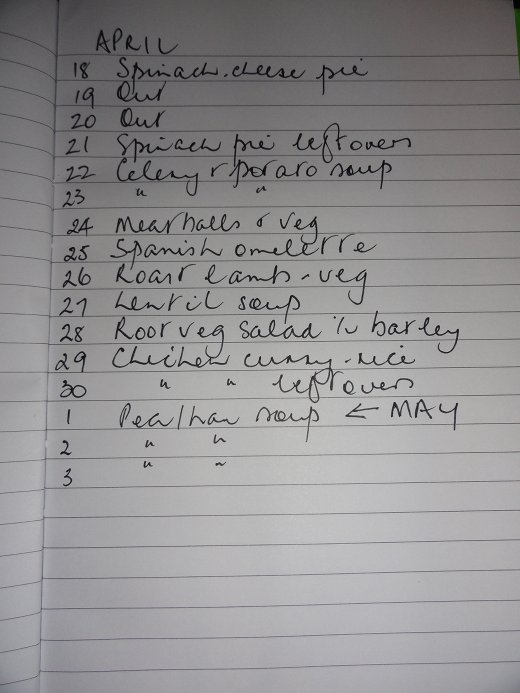 APRIL
18 Spinach.cheese pie
19 Out
20 Out
21 Spinach pie leftovers
22 Celery & potato soup
23 " "
24 Meatballs & veg
25 Spanish omelette
26 Roast lamb - veg
27 Lentil soup
28 Root veg salad w barley
29 Chicken curry - rice
30 " " leftovers
1 Pea/ham soup ← MAY
2 " "
3 " "